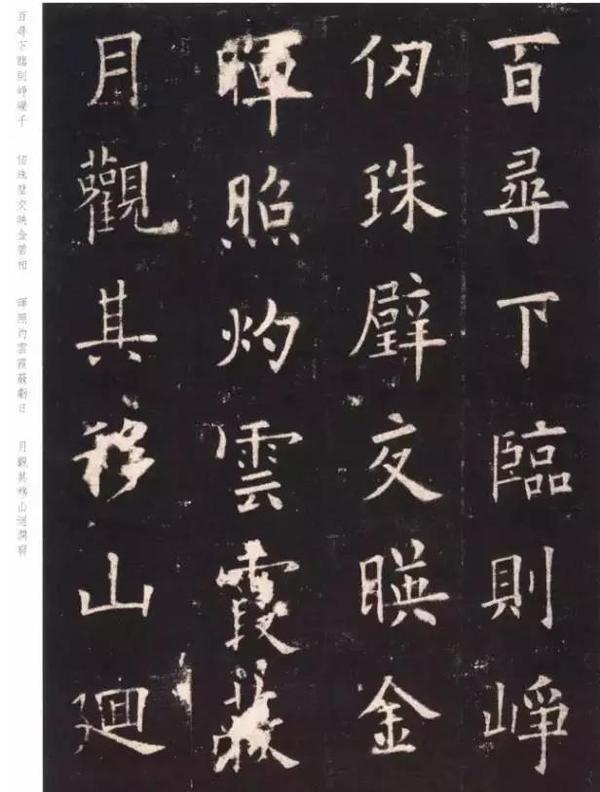 百尋下臨則崢
仞珠璧交暎金
暉照灼雲霞蔽
月觀其移山廻
百尋下臨則崢嶸千 仞珠璧交映金碧相 暉照灼雲霞蔽虧日 月觀其移山迴澗窮